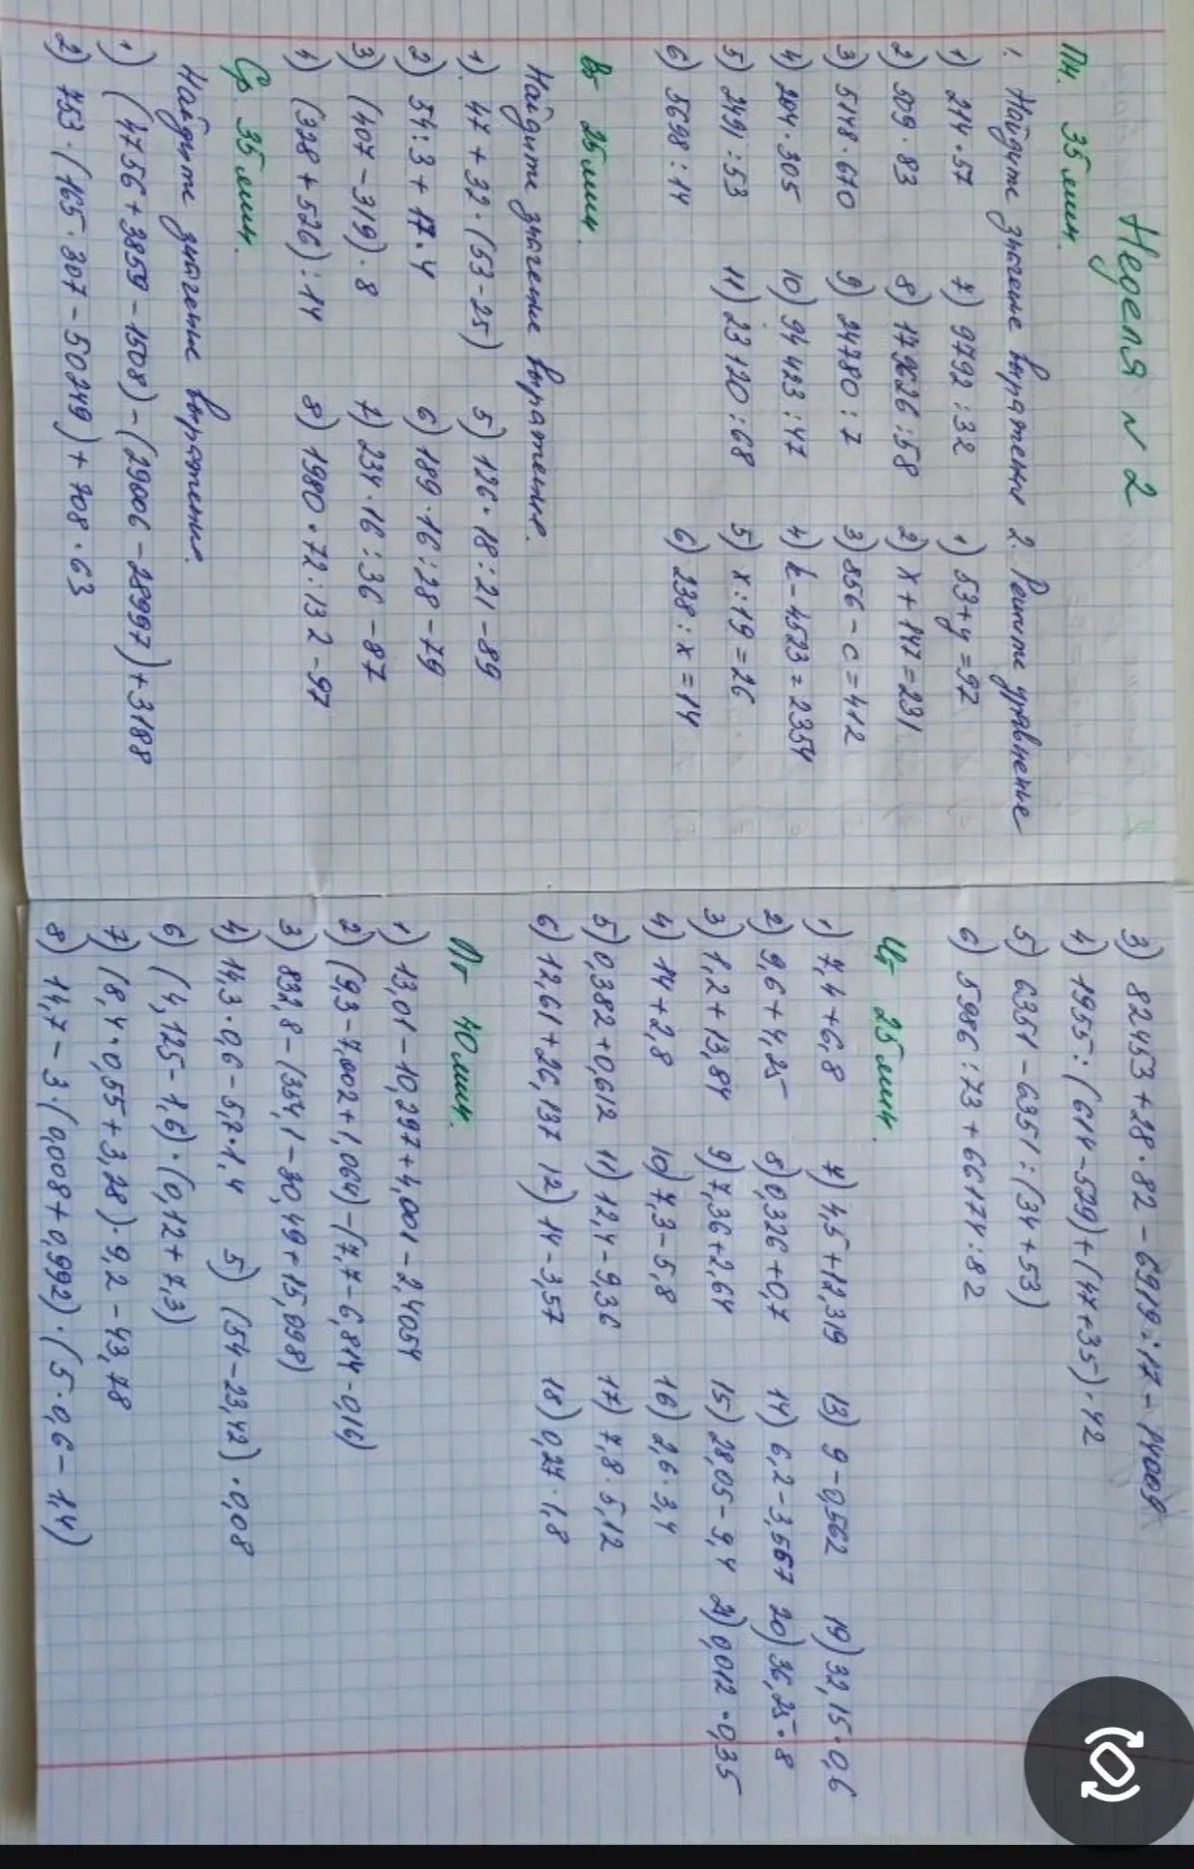 Неделя № 2
Пн. 35 мин.
1. Найдите значение выражения 2. Решите уравнение
1) 214·57 7) 9792:32 1) 53+y=97
2) 509·83 8) 179626:58 2) x+147=231
3) 5148·670 9) 24780:7 3) 856-c=412
4) 204·305 10) 94423:47 4) k-4523=2354
5) 2491:53 11) 23120:68 5) x:19=26
6) 5698:14 6) 238:x=14
Вт 25 мин.
Найдите значение выражение.
1). 47+32·(53-25) 5) 126·18:21-89
2) 54:3+17·4 6) 189·16:28-79
3) (407-319)·8 7) 234·16:36-87
4) (328+526):14 8) 1980·72:132-97
Ср. 35 мин.
Найдите значение выражение.
1) (4756+3859-1508)-(29006-28997)+3188
2) 753·(165·307-50249)+708·63
3) 82453+28·82-6919:17-14009
4) 1955:(614-529)+(47+35)·42
5) 6351-6351:(34+53)
6) 5986:73+66174:82
Чт 25 мин.
1) 7,4+6,8 7) 4,5+12,319 13) 9-0,562 19) 32,15·0,6
2) 9,6+4,25 8) 0,326+0,7 14) 6,2-3,567 20) 36,25·8
3) 1,2+13,84 9) 7,36+2,64 15) 28,05-9,4 21) 0,012·0,35
4) 14+2,8 10) 7,3-5,8 16) 2,6·3,4
5) 0,382+0,612 11) 12,4-9,36 17) 7,8·5,12
6) 12,61+26,137 12) 14-3,57 18) 0,27·1,8
Пт 40 мин.
1) 13,01-10,297+4,001-2,4054
2) (9,3-7,002+1,064)-(7,7-6,814-0,16)
3) 832,8-(354,1-30,49+15,698)
4) 14,3·0,6-5,7·1,4 5) (54-23,42)·0,08
6) (4,125-1,6)·(0,12+7,3)
7) (8,4·0,55+3,28)·9,2-43,78
8) 14,7-3·(0,008+0,992)·(5·0,6-1,4)